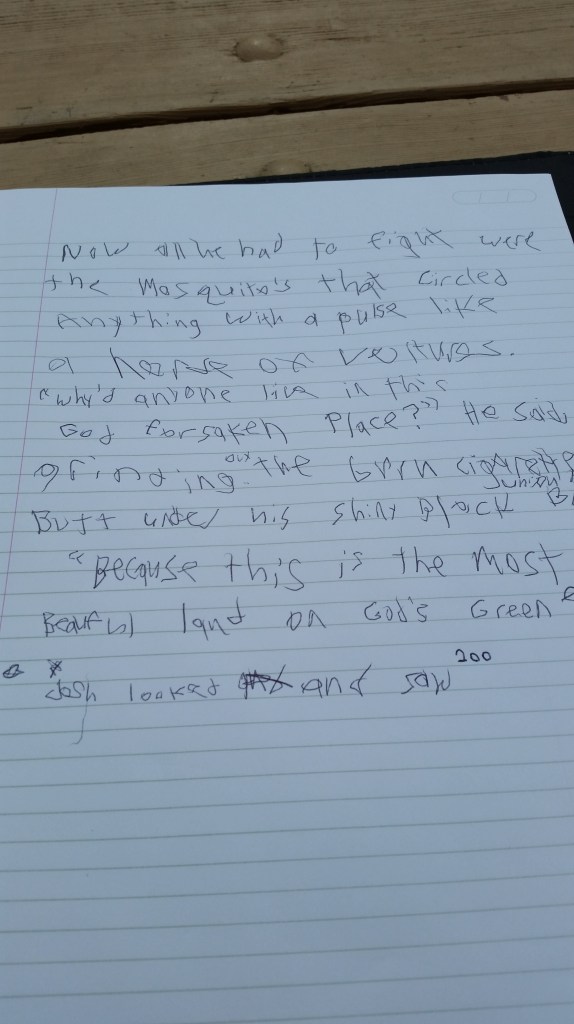 Now all he had to fight were
the Mosquito's that circled
Anything with a pulse like
a of
"why'd anyone live in this
God forsaken Place?" He said,
grinding out the
Butt under his shiny Black
"Because this is the most
land on God's Green
Josh looked and saw 200